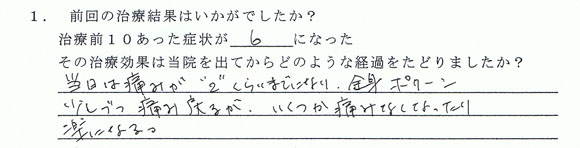 1． 前回の治療結果はいかがでしたか？
治療前１０あった症状が 6 になった
その治療効果は当院を出てからどのような経過をたどりましたか？
当日は痛みが "2" くらいまでになり、全身 ポワーン
少しづつ 痛み戻るが、いくつか痛みなくなったり
楽になる。